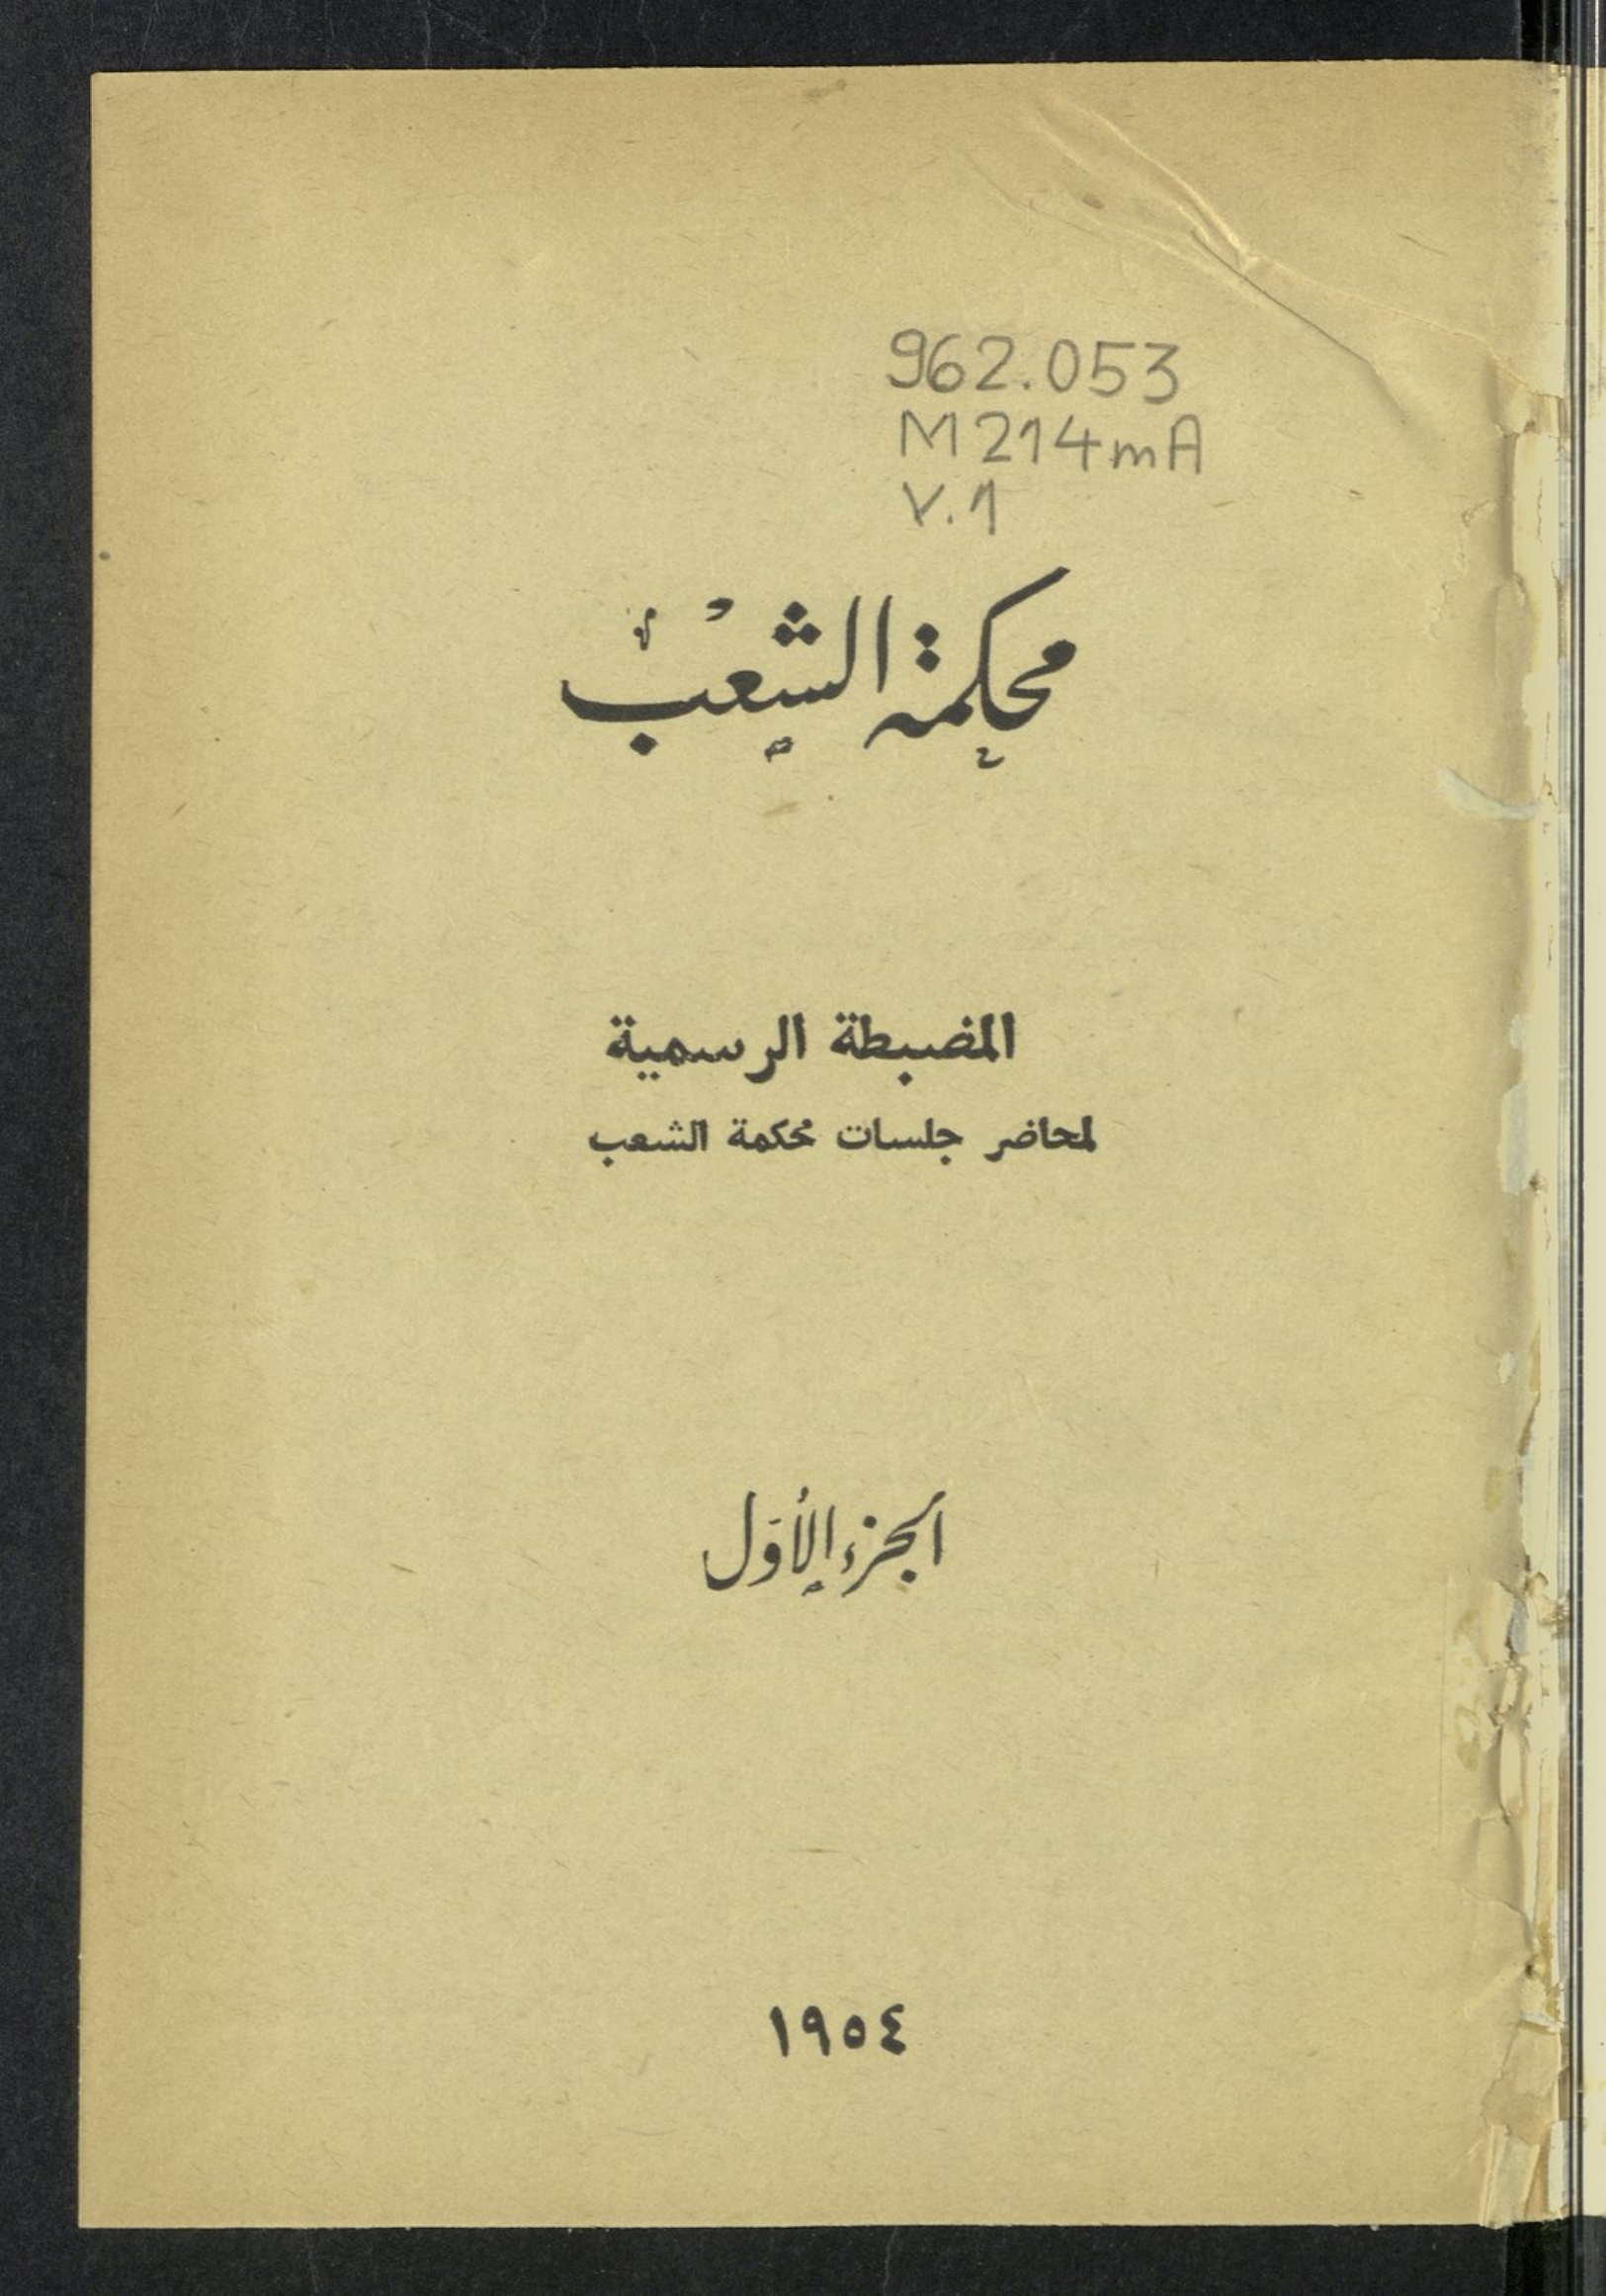 962.053
M214mA
V.1
محكمة الشعب
المضبطة الرسمية
لمحاضر جلسات محكمة الشعب
الجزء الأول
١٩٥٤